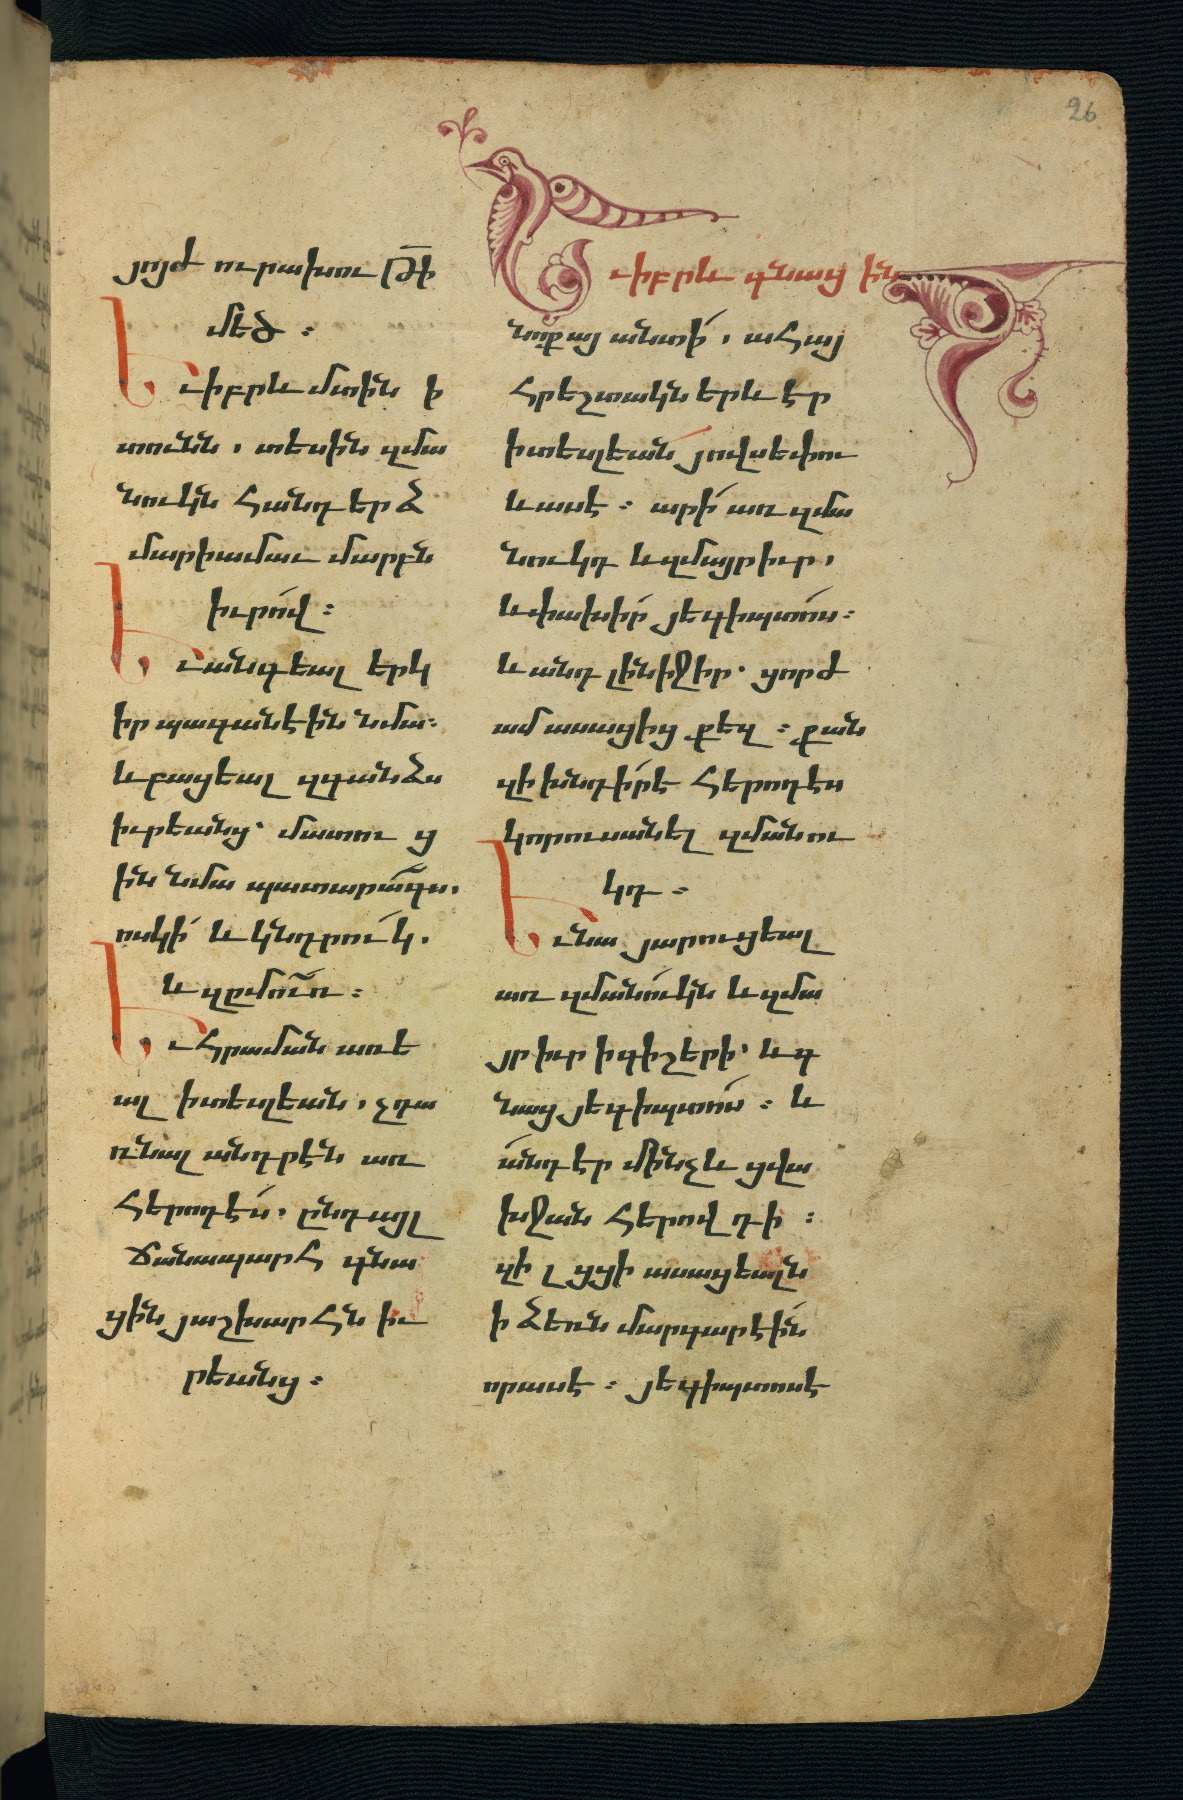 26
յոյժ ուրախու թի
մեծ :
Եւ իբրև մտին ի
տունն , տեսին զմա
նուկն հանդերձ
մարիամաւ մարբն
իւրով :
Եւ անգեալ երկ
իր պագանէին նմա :
և բացեալ զգանձս
իւրեանց · մատու ց
ին նմա պատարագս .
ոսկի և կնդրուկ .
և զըմուռս :
Եւ հրաման առե
ալ ի տեսլեան , չդա
ռնալ անդրէն առ
հերովդէս · ընդ այլ
ճանապարհ գնա
ցին յաշխարհն իւ
րեանց :
Եւ իբրև գնաց ին
նոքայ անտի , ահայ
հրեշտակն երև էր
ի տեսլեան յովսեփու
և ասէ : արի առ զմա
նուկդ և զմայր իւր ,
և փախիր յեգիպտոս :
և անդ լինիջիր · ցորժ
ամ ասացից քեզ : քան
զի խնդիրէ հերովդէս
կորուսանել զմանու
կդ :
Եւ նա յարուցեալ
առ զմանուկն և զմա
յր իւր ի գիշերի · և գ
նաց յեգիպտոս : և
անդ էր մինչև ցվա
խջան հերովդի :
զի լ ցցի ասացեալն
ի ձեռն մարգարէին
որ ասէ : յեգիպտոսէ